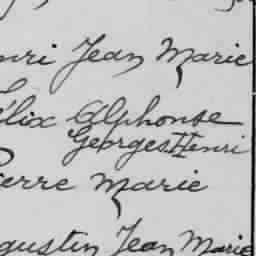 nri Jean Marie
élix Alphonse
Georges Henri
ierre Marie
gustin Jean Marie